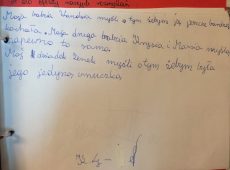 Moja babcia Wandzia myśli o tym żebym ją jeszcze bardziej
kochała. Moja druga babcia Krysia i Marsia myślą
napewno to samo.
Mój dziadek Zenek myśli o tym żebym była
jego jedyną wnuczką